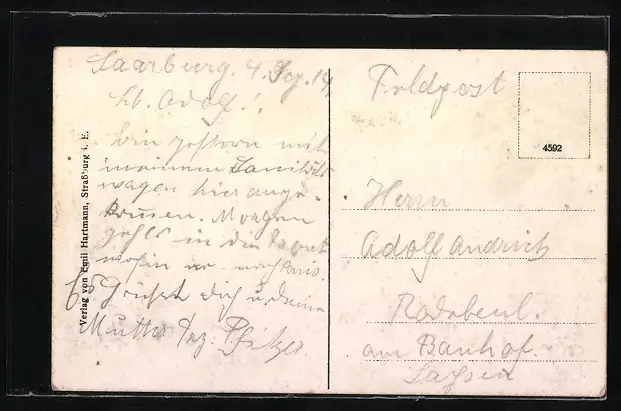 Saarburg. 4. Sep. 14.
Lb. Adolf!
bin gestern mit
meinem Sanitäts
wagen hier ange-
kommen. Morgen
gehts in die
Es grüßt dich u. deine
Mutter Frz. Pfitzer
Verlag von Emil Hartmann, Straßburg i. E.
Feldpost
4592
Herrn
Adolf Andrich
Radebeul.
am Banhof.
Sachsen